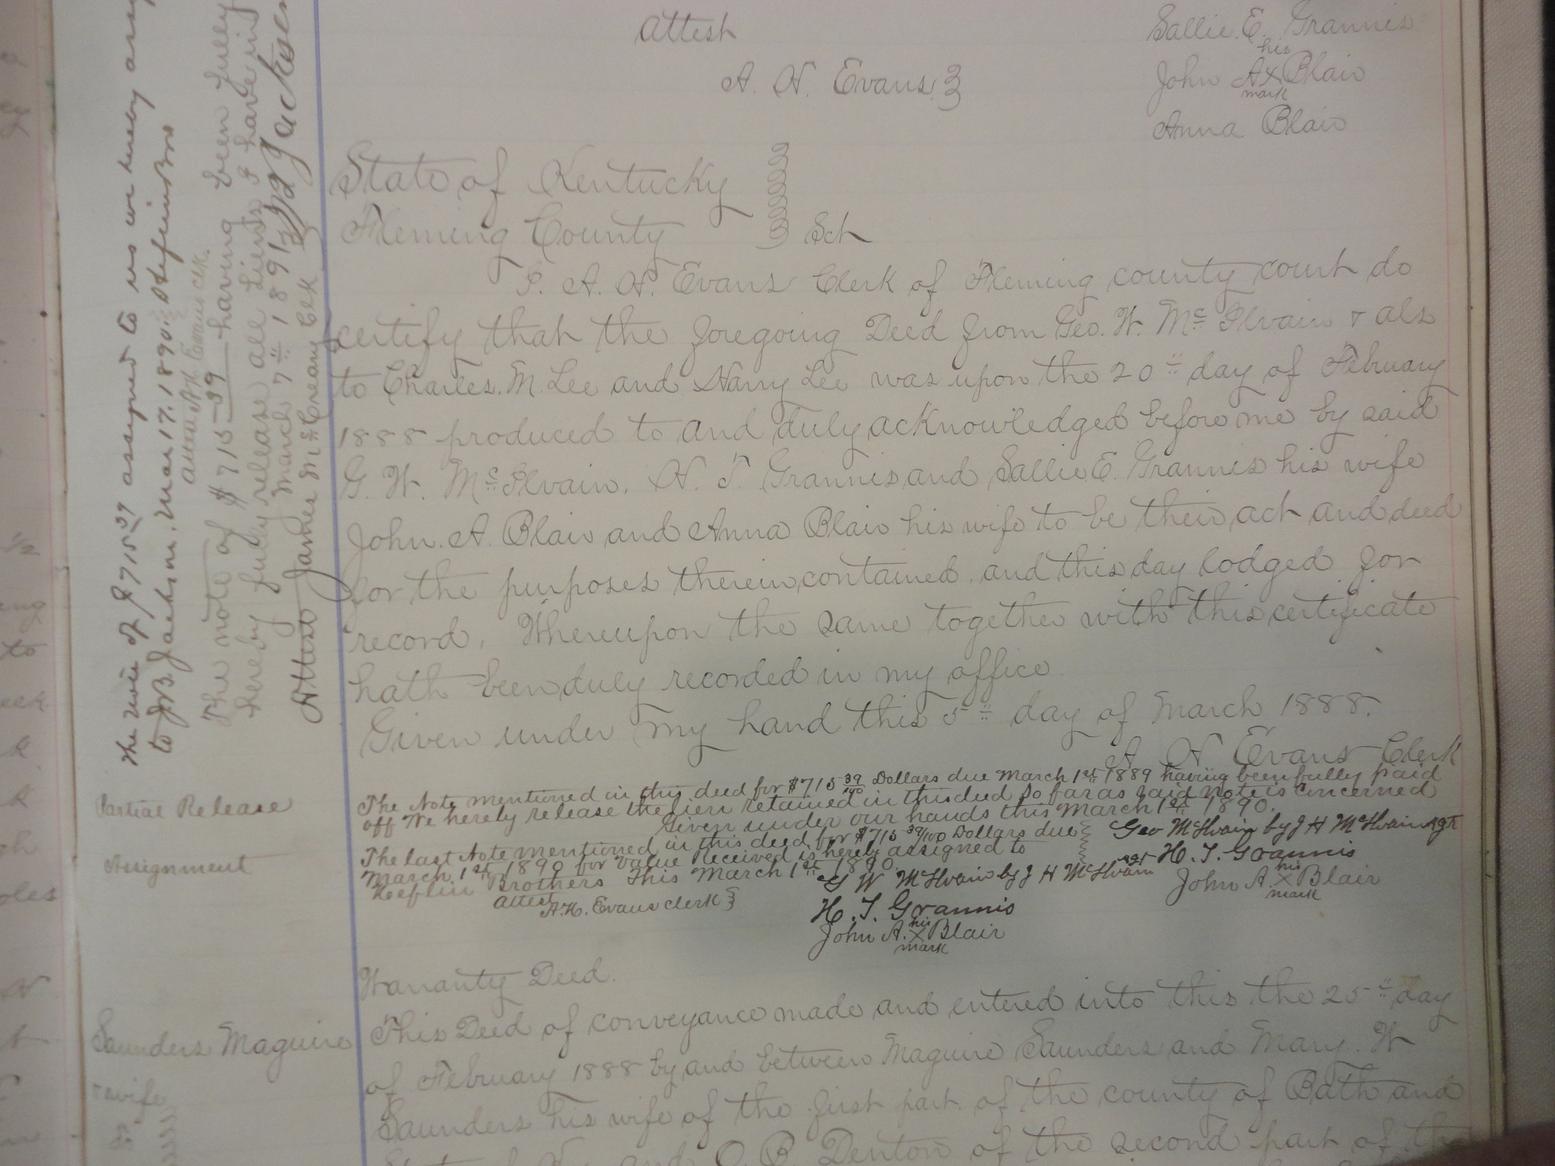 Attest
A. H. Evans
Sallie. E. Grannis
his
John A X Blair
mark
Anna Blair
State of Kentucky
Fleming County Sct
I. A. H. Evans Clerk of Fleming county court do
certify that the foregoing Deed from Geo. W. Mc Ilvain & als
to Charles. M. Lee and Harry Lee was upon the 20th day of February
1888 produced to and duly acknowledged before me by said
G. W. Mc Ilvain. H. T. Grannis and Sallie E. Grannis his wife
John. A. Blair and Anna Blair his wife to be their act and deed
for the purposes therein contained. and this day lodged for
record. Whereupon the same together with this certificate
hath been duly recorded in my office
Given under my hand this 5th day of March 1888.
A H Evans Clerk
Partial Release
The Note mentioned in this deed for $715 39/100 Dollars due March 1st 1889 having been fully paid
off We hereby release the lien retained in this deed so far as said note is concerned
Given under our hands this March 1st 1890.
Geo McIlvain by J H McIlvain agt
H. T. Grannis
his
John A. X Blair
mark
Assignment
The last Note mentioned in this deed for $715 39/100 Dollars due
March 1st 1890 for value received is hereby assigned to
Heflin Brothers This March 1st 1890
attest
A. H. Evans clerk
G W McIlvain by J H McIlvain agt
H. T. Grannis
his
John A. X Blair
mark
Warranty Deed.
Saunders Maguire
& wife
This Deed of conveyance made and entered into this the 25th day
of February 1888 by and between Maguire Saunders and Mary. W
Saunders his wife of the first part. of the county of Bath and
State of Ky and O. B. Denton of the second part of the
The note of $715 39 assigned to us we hereby
to J B Jackson. Mar 17. 1890. Heflin Bros
The note of $715 39 having been fully
hereby fully release all liens I have in
March 7th 1891 Jackson
Attest James McCreary Clk